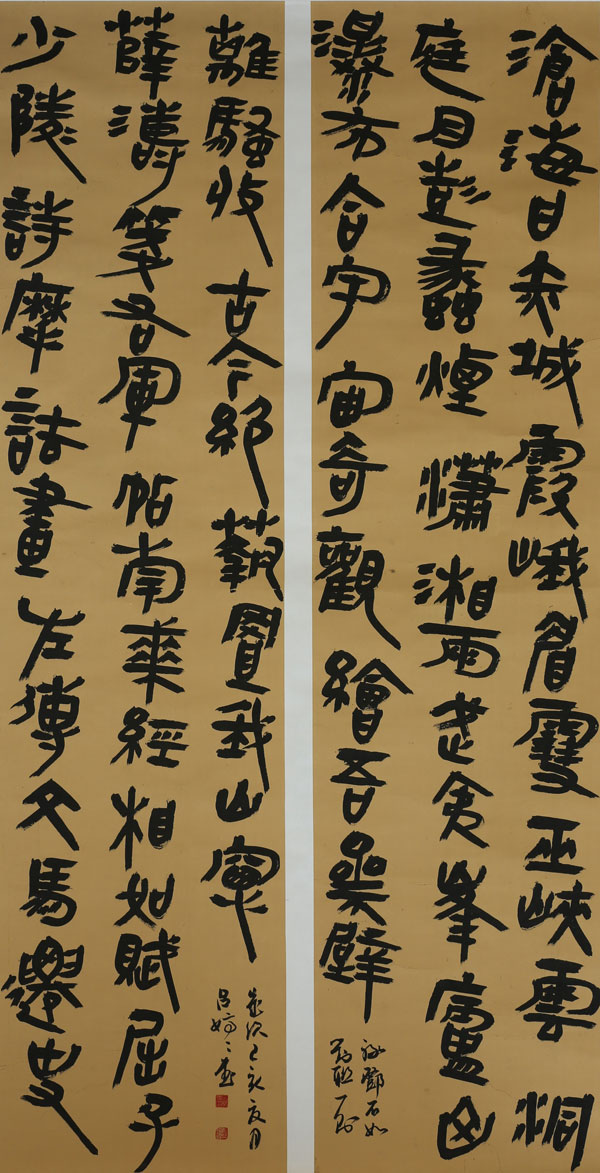 滄海日赤城霞峨眉雪巫峽雲洞
庭月彭蠡煙瀟湘雨武夷峯廬山
瀑布合宇宙奇觀繪吾齋壁
錄鄧石如
對聯一則
少陵詩摩詰畫左傳文馬遷史
薛濤箋右軍帖南華經相如賦屈子
離騷收古今絕藝置我山窗
歲次己亥夏月
呂書